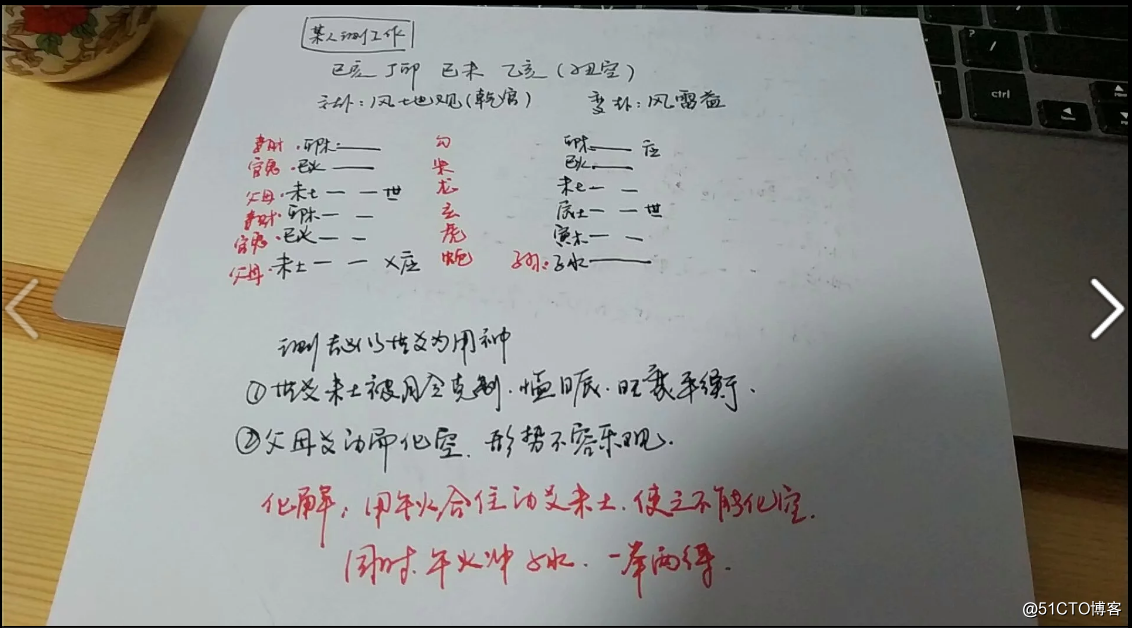 某人测工作
己亥 丁卯 己未 乙亥 (子丑空)
主卦:风地观(乾宫) 变卦:风雷益
妻财·卯木 勾 卯木 应
官鬼·巳火 朱 巳火
父母·未土 世 龙 未土
妻财·卯木 玄 辰土 世
官鬼·巳火 虎 寅木
父母·未土 X应 蛇 子孙:子水
测 以世爻为用神
①世爻未土被月令克制.值日辰.旺衰平衡.
②父母爻动而化空.形势不容乐观.
化解:用午火合住动爻未土.使之不能化空.
同时.午火冲子水.一举两得.
ctrl
@51CTO博客